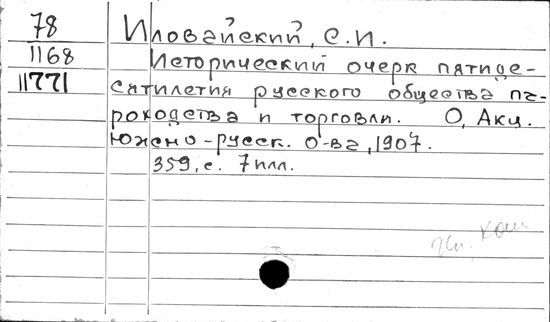 78
1168
11771
Иловайский, С.И.
Исторический очерк пятиде-
сятилетия русского общества па-
роходства и торговли. О, Акц.
Южно-русск. О-ва, 1907.
359, с. 7 илл.